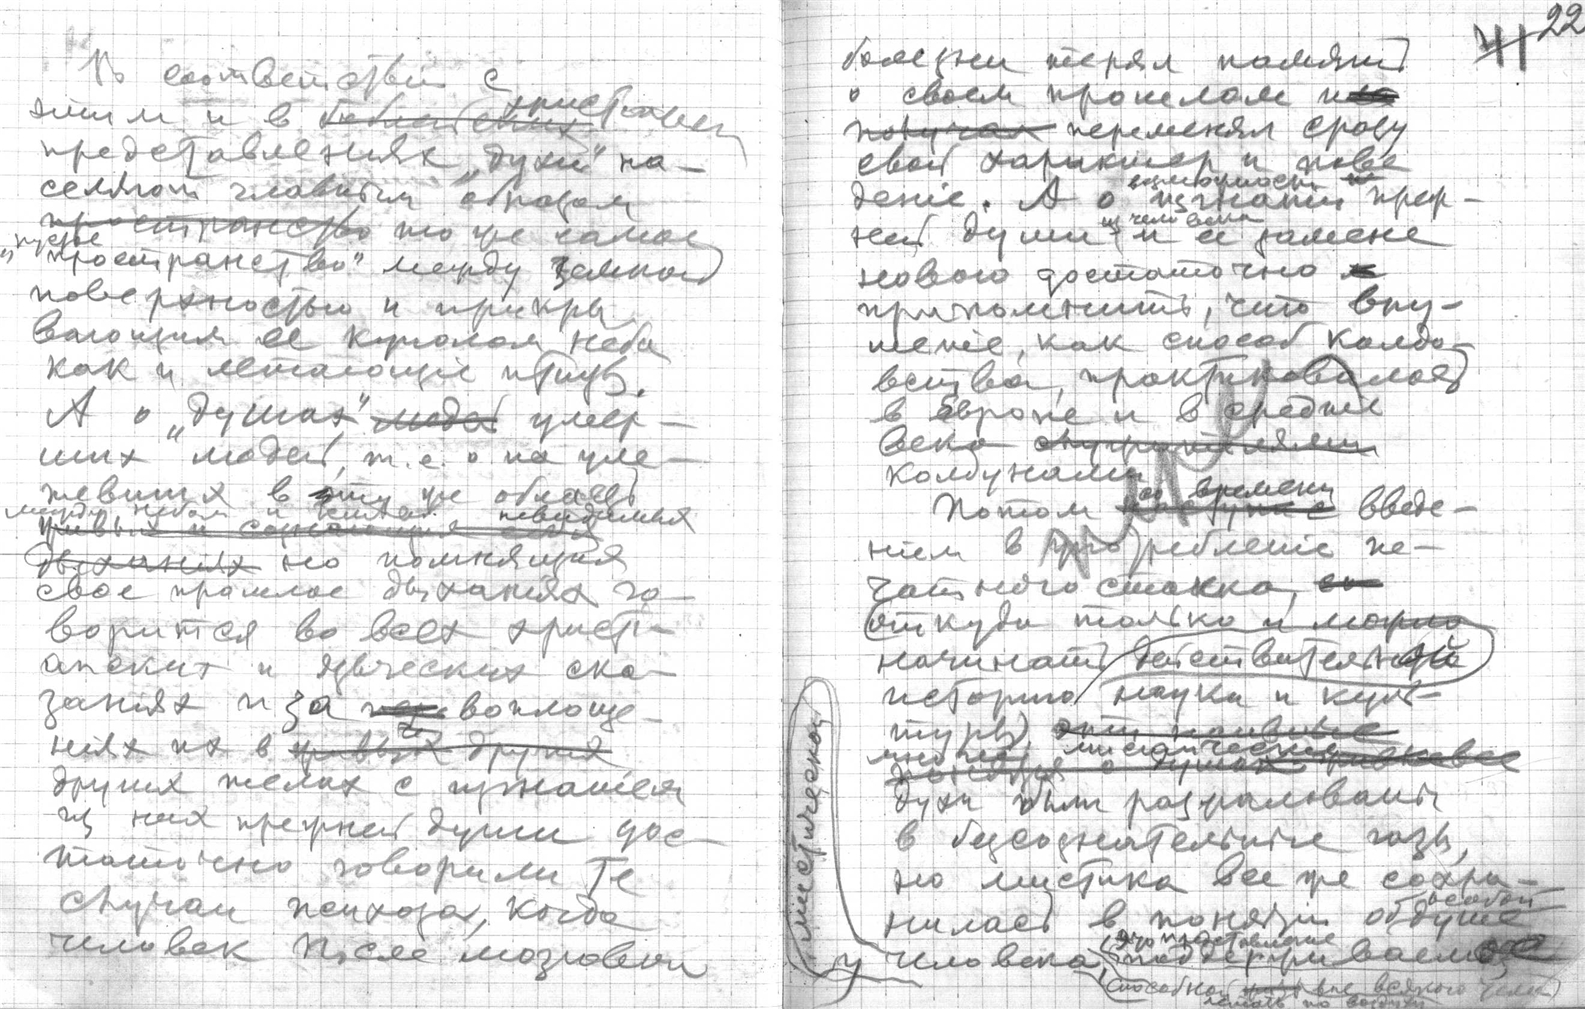 В соответствiи с
этим и в библейских христiанских
представленiях „духи" на-
селяют главным образом
пространство то же самое
„пустое
пространство" между земной
поверхностью и прикры
вающим ее куполом неба
как и летающiе птицы.
А о „душах" людей умер-
ших людей, т. е. о на
в эту же область
между небом и невидимыя
живыя и
дыханiях но помнящiя
свое прошлое дыханiях го-
ворится во всех христi-
анских и языческих ска-
занiях и за воплоще-
нiях их в других
других телах с изгнанiем
из них прежней души дос-
таточно говорили те
случаи психоза, когда
человек после мозговой
22
41
болезни терял память
о своем прошлом и
получал переменял сразу
свой характер и пове
денiе. А о возможности изгнанiи преж-
ней души из человека и ея замене
нового достаточно
припомнить, что вну-
шенiе, как способ колдо-
вства, практиковалось
в Европе и в среднiе
века
колдунами
Потом со времени введе-
нiем в употребленiе пе-
чатного станка,
откуда только и можно
начинать действительную
исторiю науки и куль-
туры,
многие мистическiе
о душах
духи были разжалованы
в безсознательные газы,
но мистика все же сохра-
нилась в понятiи об особой душе
у человека, это представленiе
поддерживаемое
способной вне всякого тела
летать по воздуху
мистической